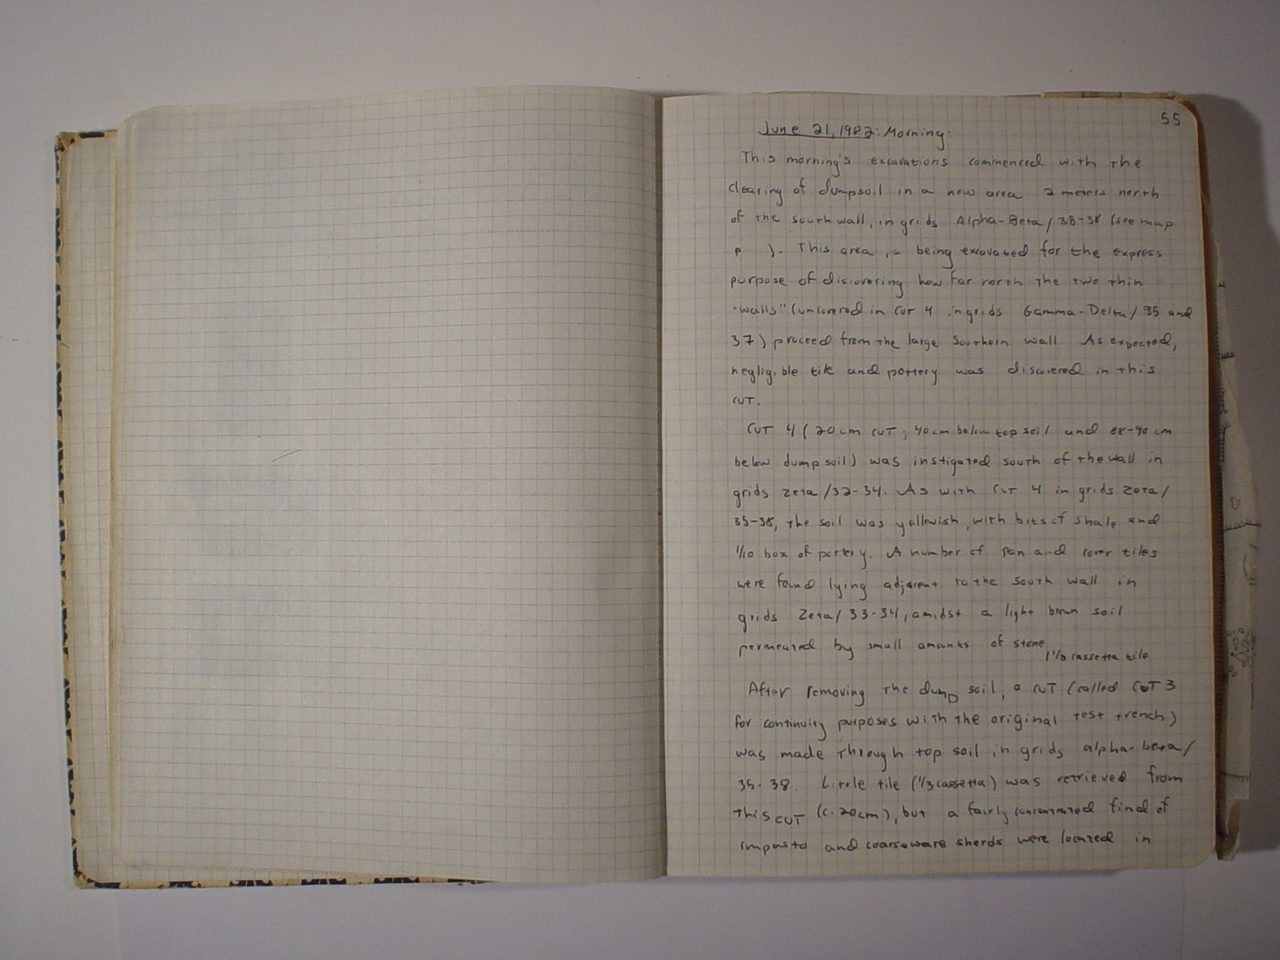 55
June 21, 1982: Morning:
This morning's excavations commenced with the
clearing of dumpsoil in a new area 2 meters north
of the south wall, in grids Alpha-Beta/35-38 (see map
p ). This area is being excavated for the express
purpose of discovering how far north the two thin
"walls" (uncovered in CUT 4 in grids Gamma-Delta/35 and
37) proceed from the large southern wall. As expected,
negligible tile and pottery was discovered in this
CUT.
CUT 4 (20cm CUT; 40cm below top soil and 88-90 cm
below dump soil) was instigated south of the wall in
grids Zeta/32-34. As with CUT 4 in grids Zeta/
35-38, the soil was yellowish, with bits of shale and
1/10 box of pottery. A number of pan and cover tiles
were found lying adjacent to the south wall in
grids Zeta/33-34, amidst a light brown soil
permeated by small amounts of stone
1 1/3 cassetta tile
After removing the dump soil, a CUT (called CUT 3
for continuity purposes with the original test trench)
was made through top soil in grids alpha-beta/
35-38. Little tile (1/3 cassetta) was retrieved from
this CUT (c. 20cm), but a fairly concentrated find of
impasto and coarseware sherds were located in